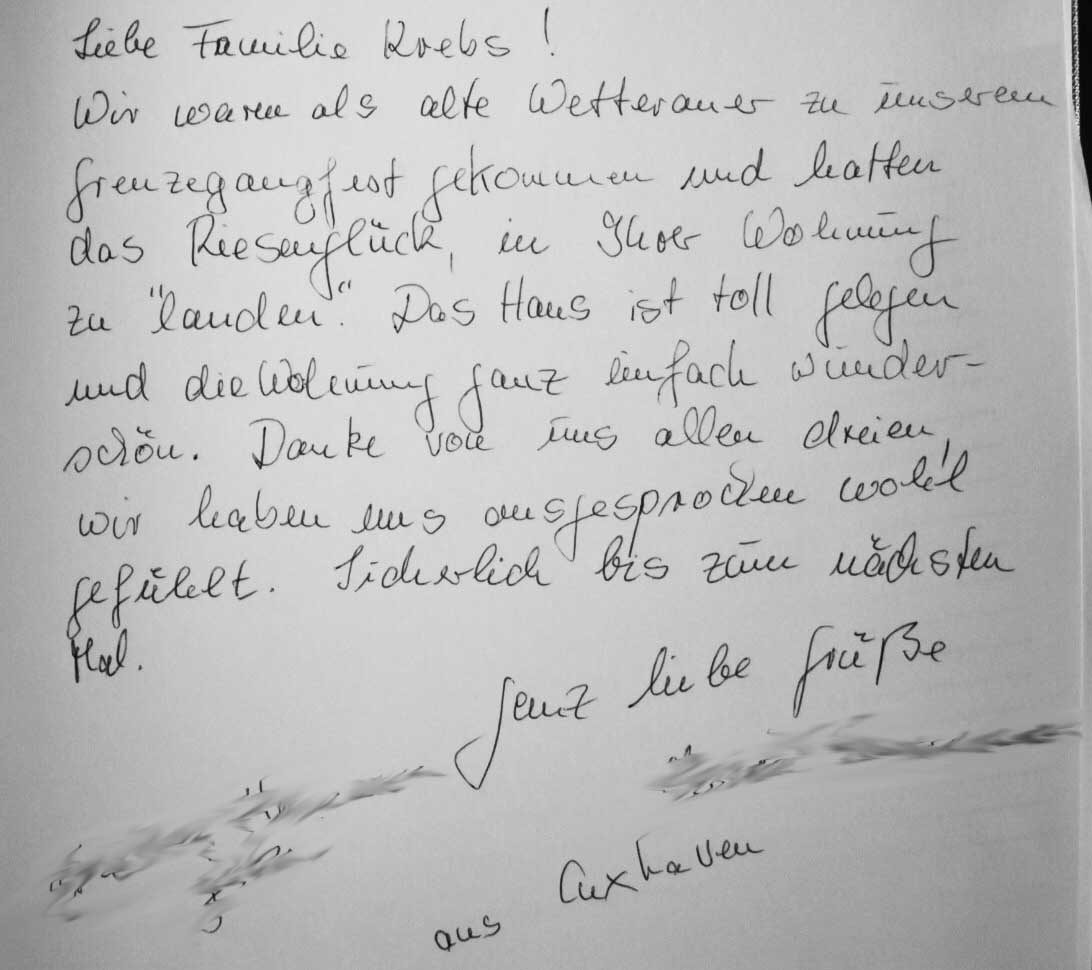 Liebe Familie Krebs!
Wir waren als alte Wetterauer zu unserem
Grenzegangfest gekommen und hatten
das Riesenglück, in Ihrer Wohnung
zu "landen". Das Haus ist toll gelegen
und die Wohnung ganz einfach wunder-
schön. Danke von uns allen dreien,
wir haben uns ausgesprochen wohl
gefühlt. Sicherlich bis zum nächsten
Mal.
Ganz liebe Grüße
aus Cuxhaven